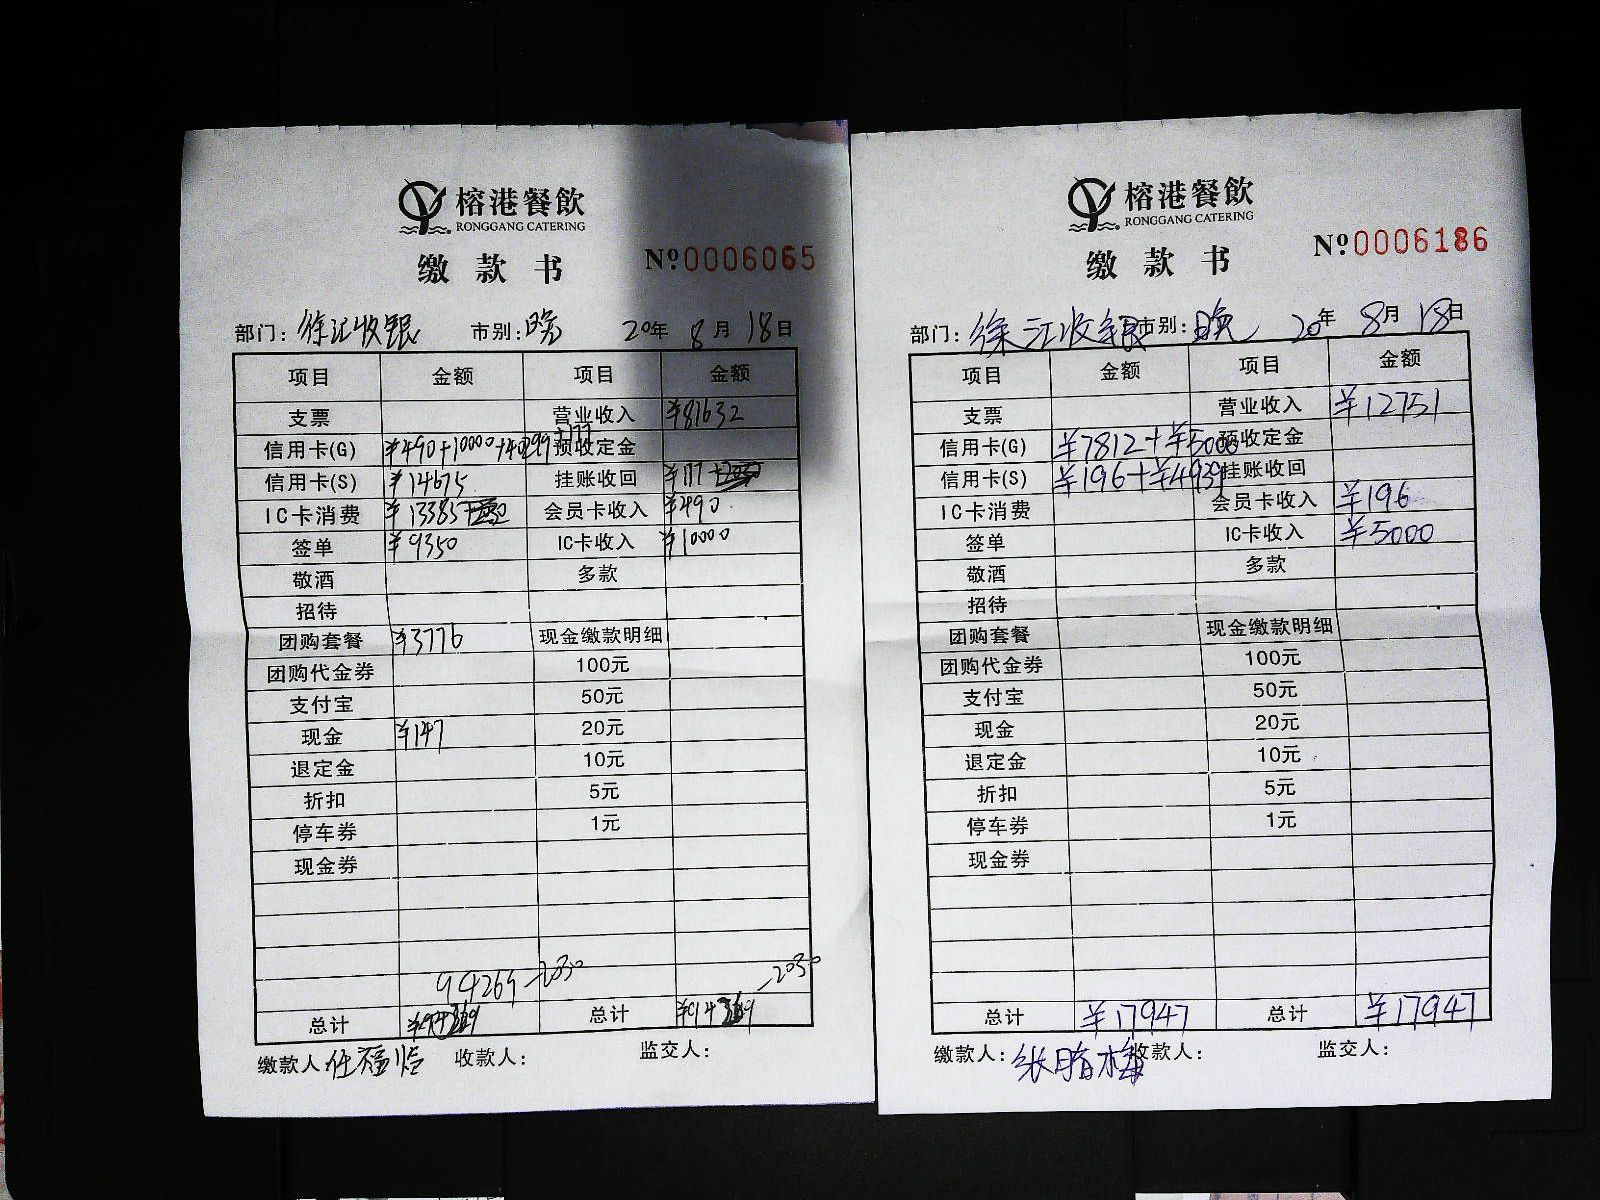 榕港餐飲
RONGGANG CATERING
缴款书
Nº0006065
部门：徐汇收银 市别：晚 20年 8月 18日
项目 金额 项目 金额
支票 营业收入 ¥81632
信用卡(G) ¥490+10000+40299+177 预收定金
信用卡(S) ¥14675 挂账收回 ¥177
IC卡消费 ¥13385 会员卡收入 ¥490
签单 ¥9350 IC卡收入 ¥10000
敬酒 多款
招待
团购套餐 ¥3776 现金缴款明细
团购代金券 100元
支付宝 50元
现金 ¥147 20元
退定金 10元
折扣 5元
停车券 1元
现金券
94269-2030 -2030
总计 总计
缴款人 收款人： 监交人：
榕港餐飲
RONGGANG CATERING
缴款书
Nº0006186
部门：徐汇收银 市别：晚 20年 8月 18日
项目 金额 项目 金额
支票 营业收入 ¥12751
信用卡(G) ¥7812+¥5000 预收定金
信用卡(S) ¥196+¥4939 挂账收回
IC卡消费 会员卡收入 ¥196
签单 IC卡收入 ¥5000
敬酒 多款
招待
团购套餐 现金缴款明细
团购代金券 100元
支付宝 50元
现金 20元
退定金 10元
折扣 5元
停车券 1元
现金券
总计 ¥17947 总计 ¥17947
缴款人： 收款人： 监交人：